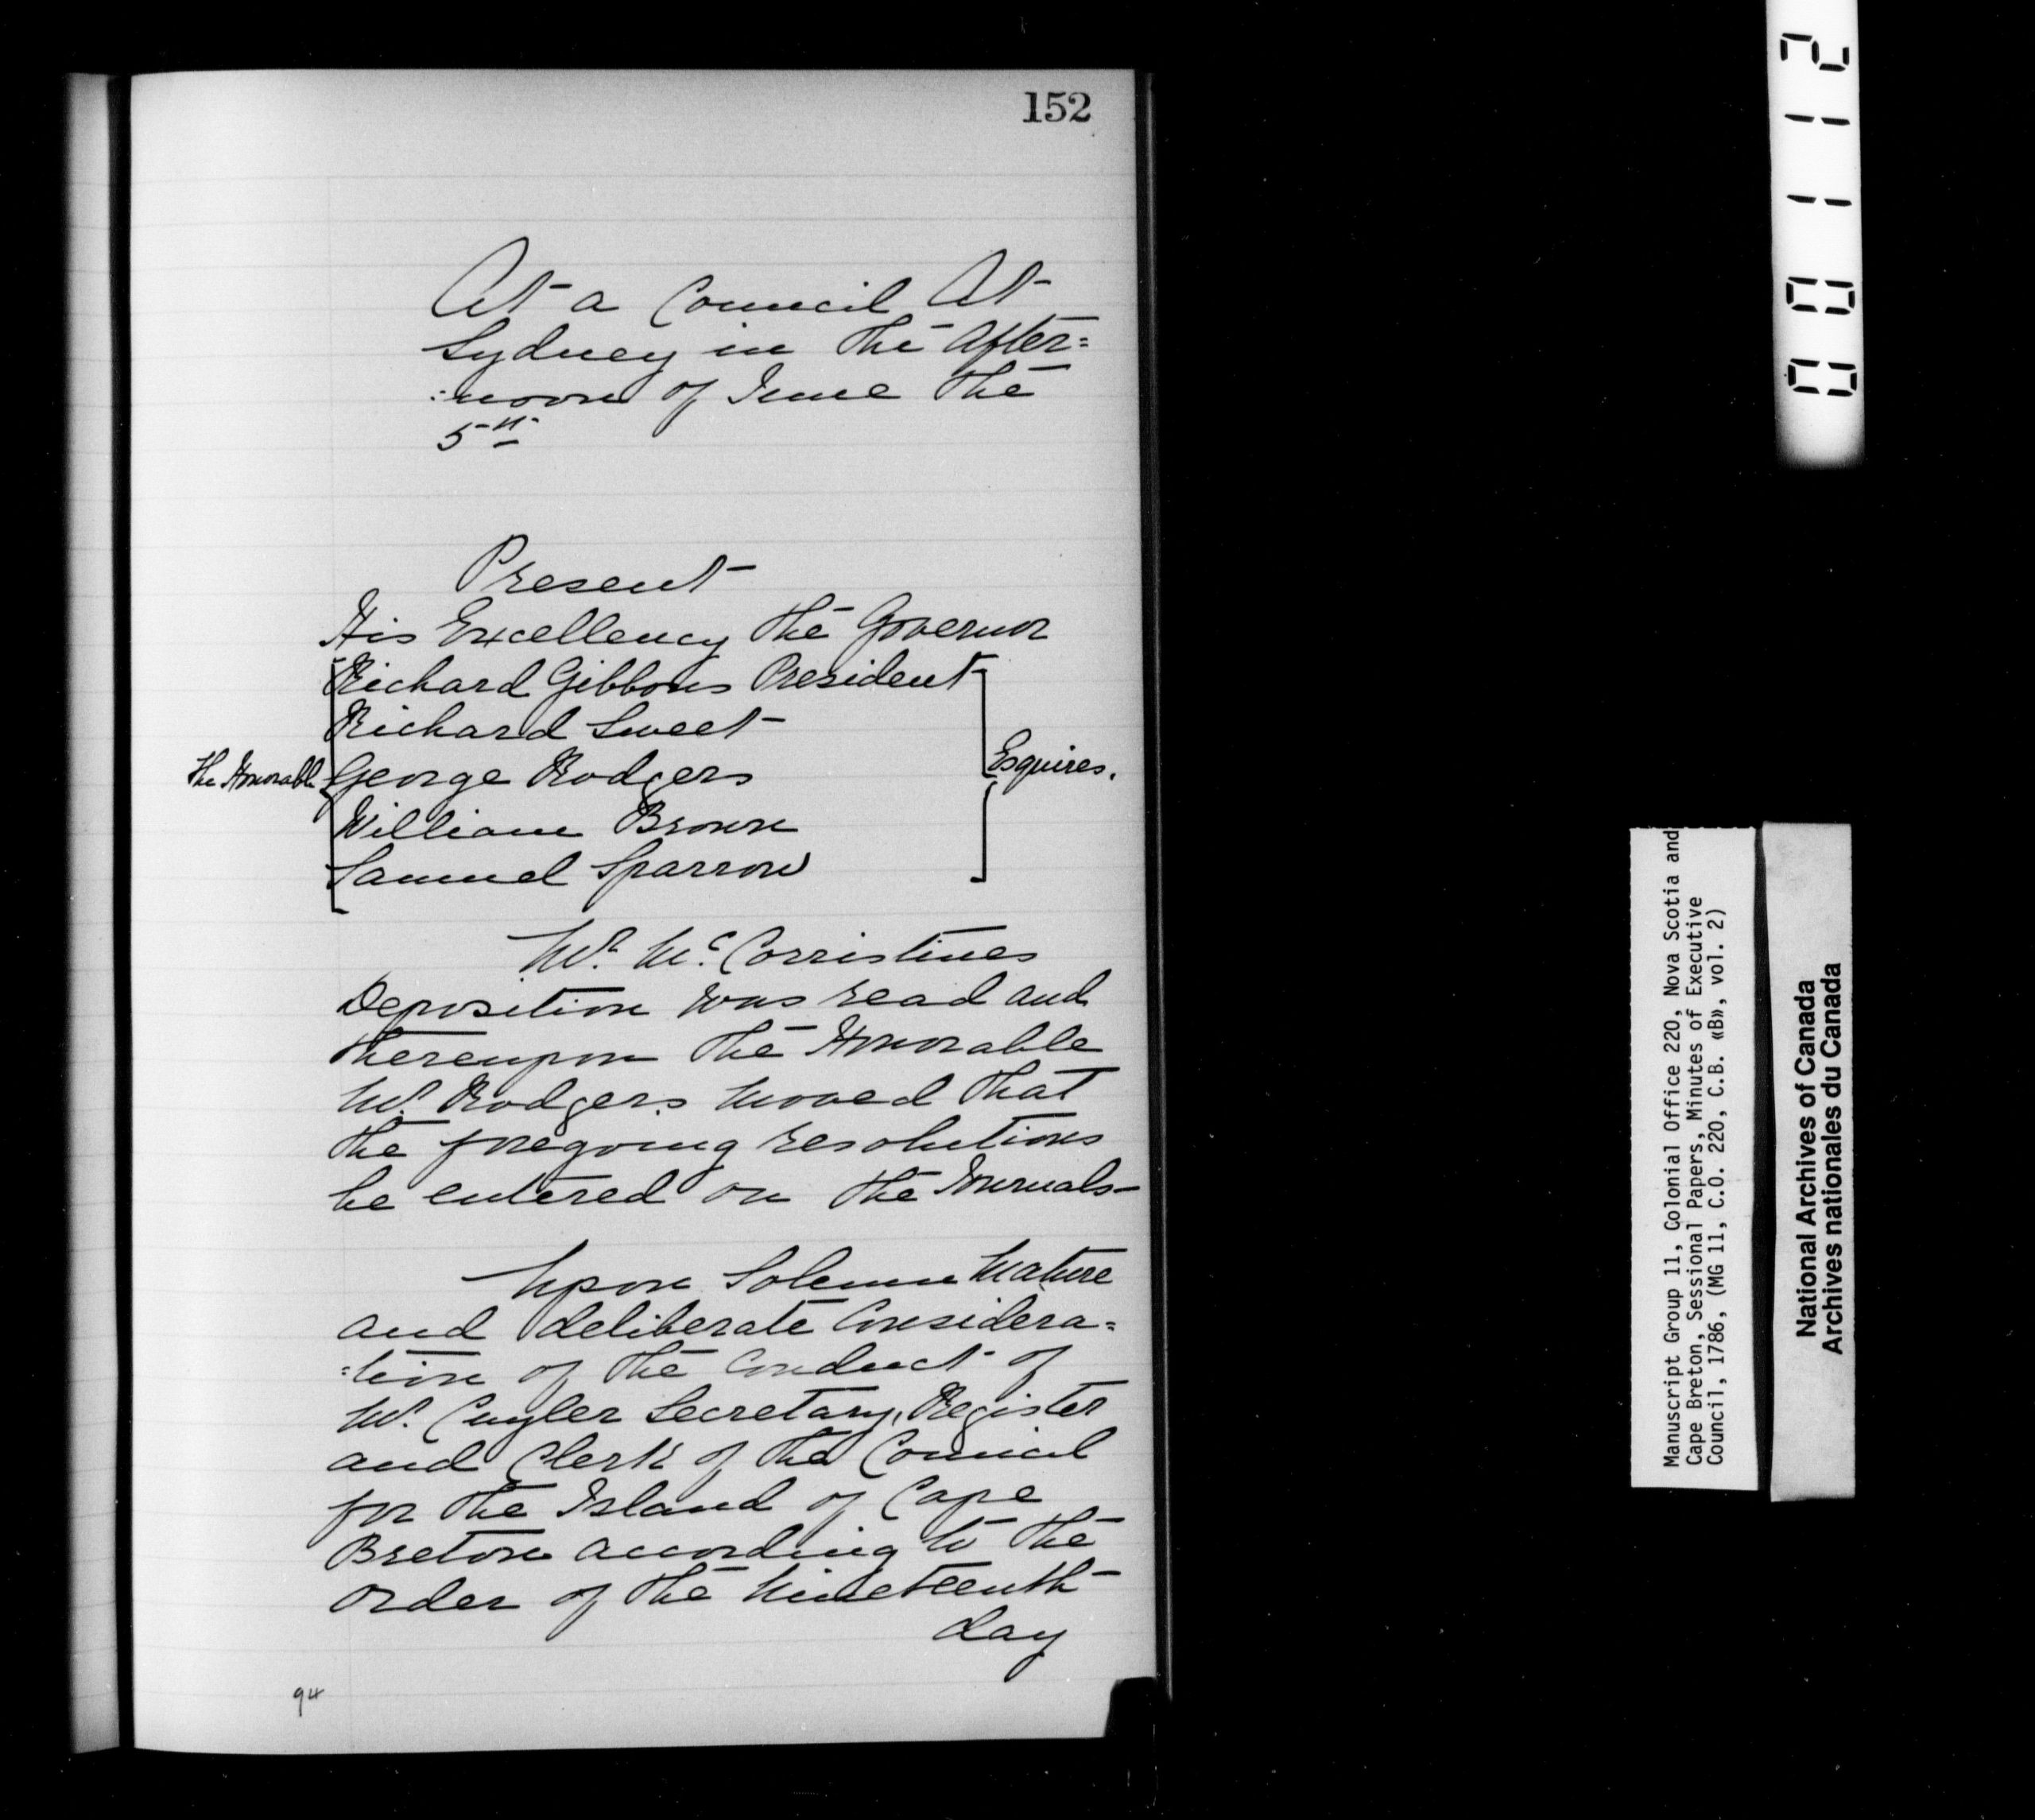 152
At a Council At
Sydney in the After=
:noon of June the
5th
Present
His Excellency the Governor
Richard Gibbons President
Richard Sweet
The Honorable George Rodgers Esquires.
William Brown
Samuel Sparrow
Mr. McCorristines
Deposition was read and
thereupon the Honorable
Mr. Rodgers moved that
the foregoing resolutions
be entered on the Journals—
Upon Solemn Mature
and deliberate Considera=
:tion of the Conduct of
Mr. Cuyler Secretary, Register
and Clerk of the Council
for the Island of Cape
Breton according to the
order of the Nineteenth
day
94
00112
Manuscript Group 11, Colonial Office 220, Nova Scotia and
Cape Breton, Sessional Papers, Minutes of Executive
Council, 1786, (MG 11, C.O. 220, C.B. «B», vol. 2)
National Archives of Canada
Archives nationales du Canada